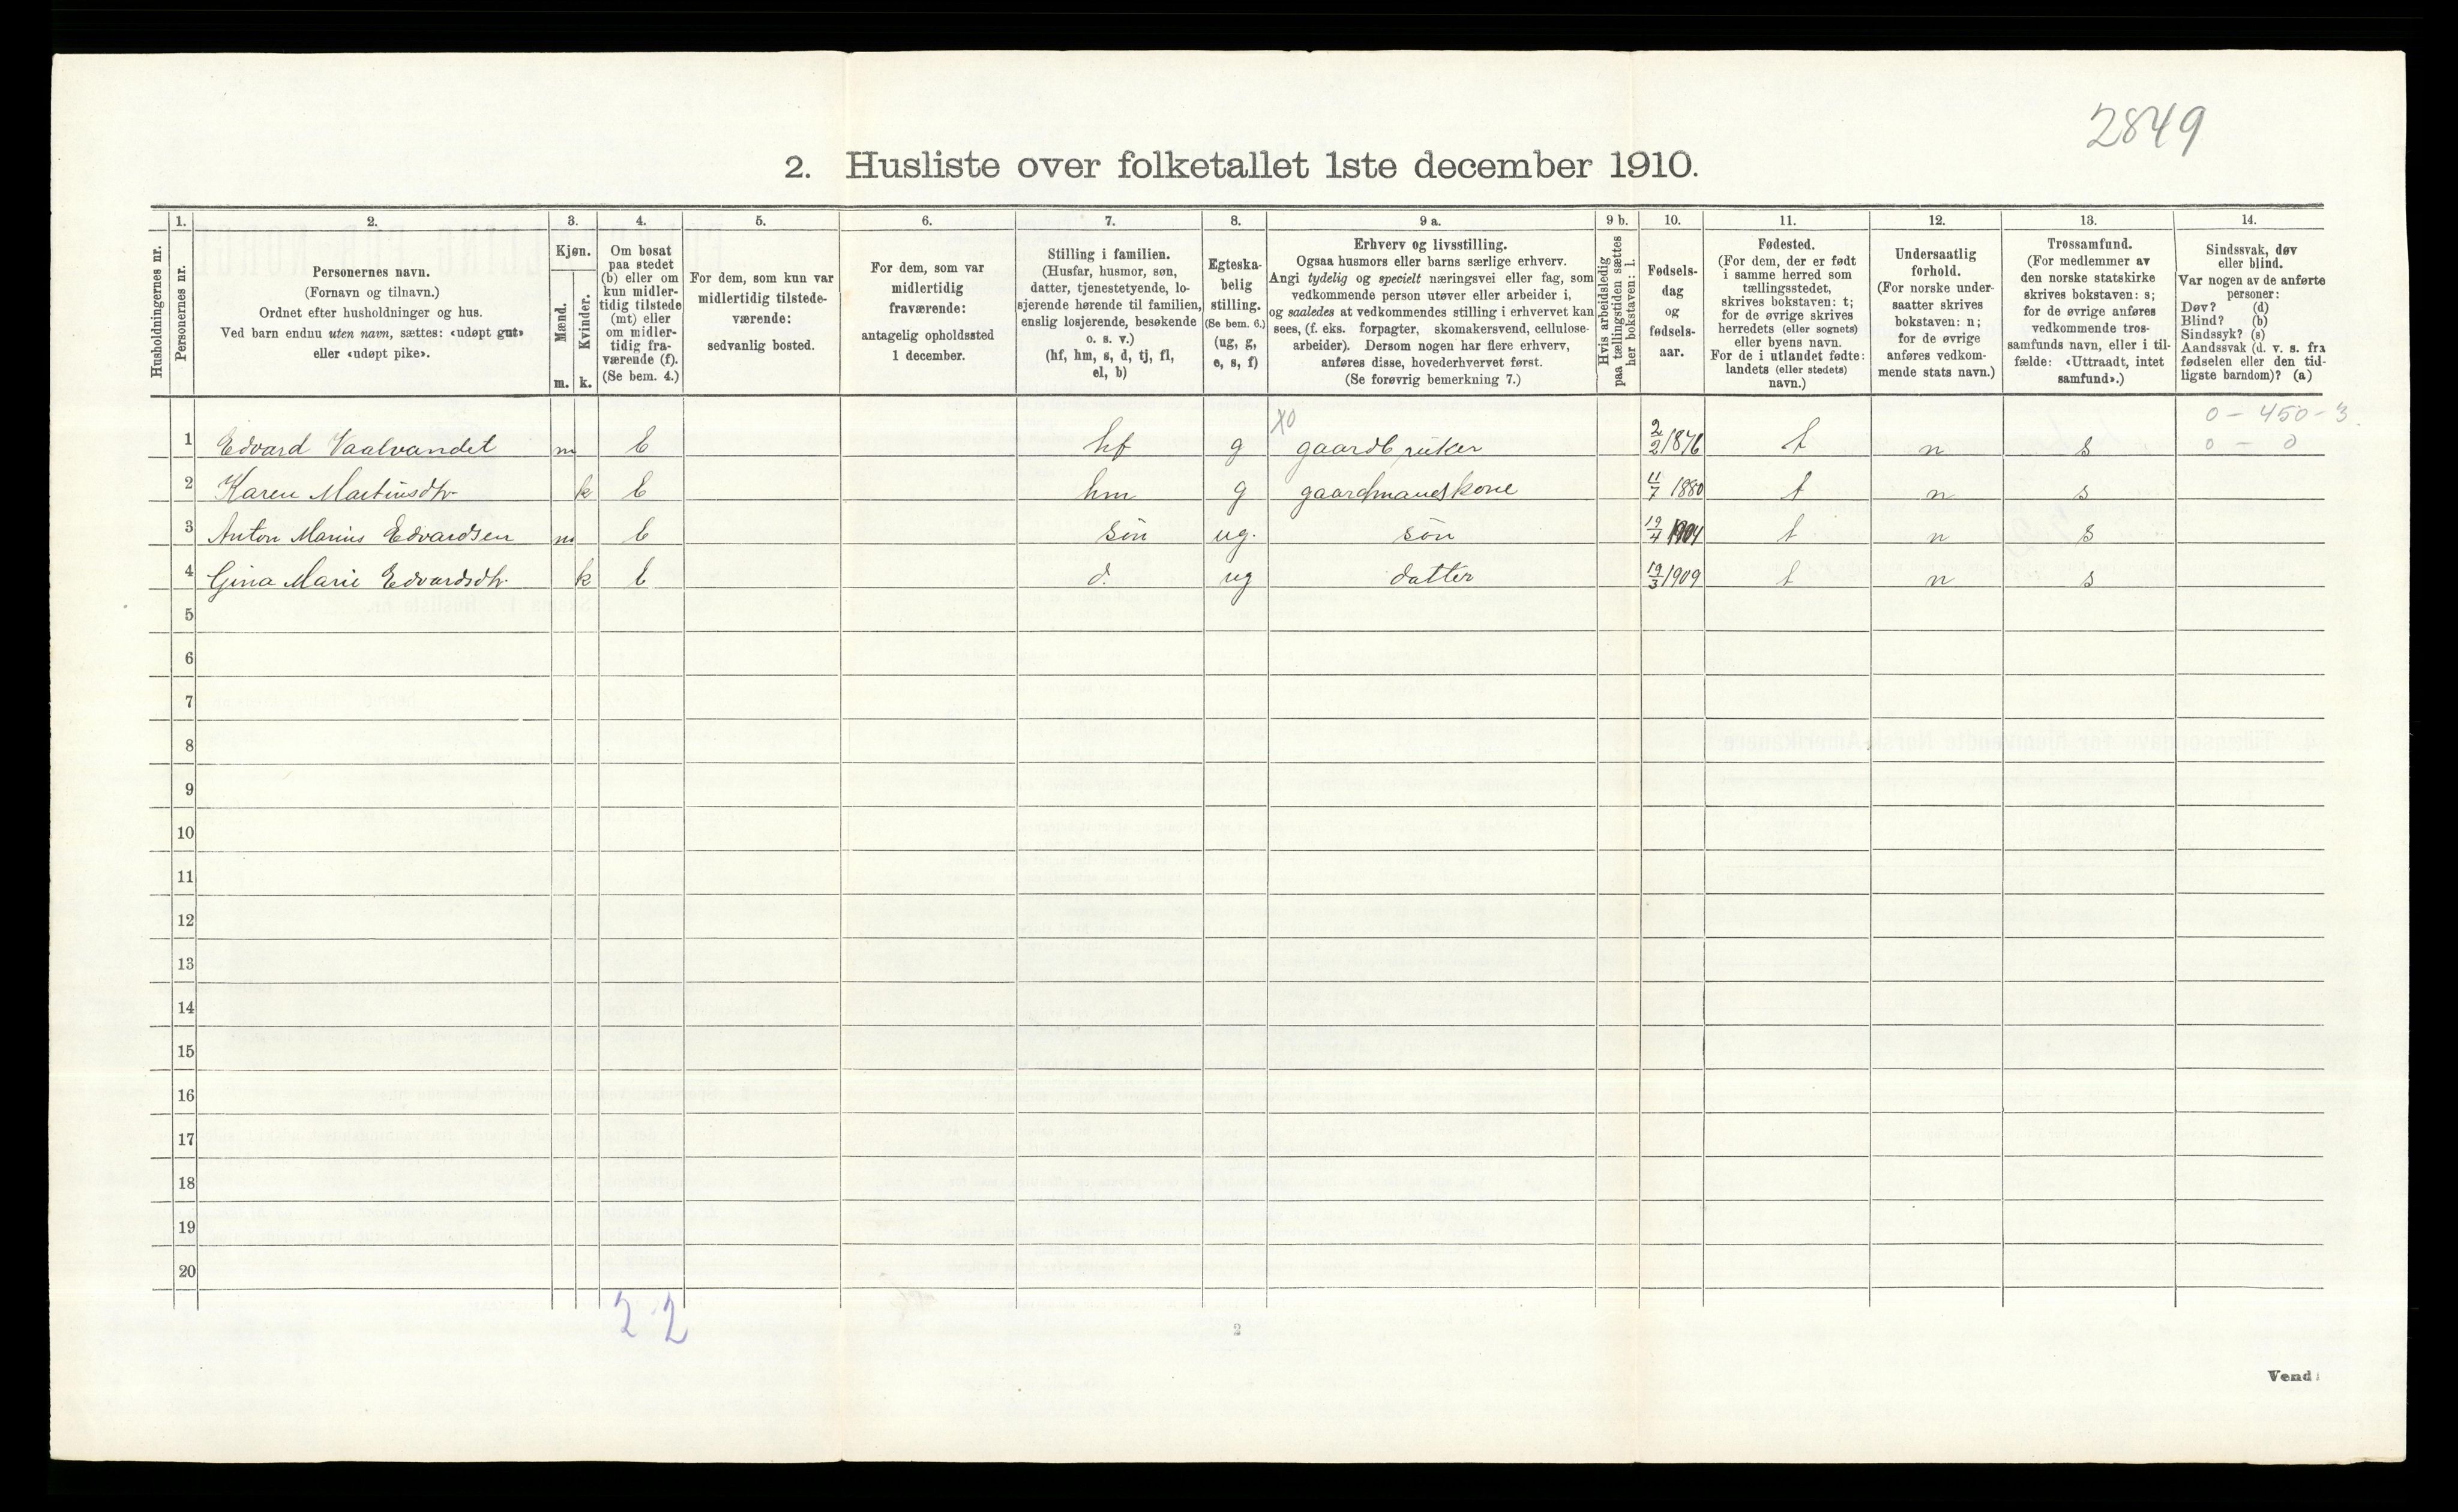 2849
2. Husliste over folketallet 1ste december 1910.
1. 2. 3. 4. 5. 6. 7. 8. 9 a. 9 b. 10. 11. 12. 13. 14.
Husholdningernes nr.
Personernes nr.
Personernes navn.
(Fornavn og tilnavn.)
Ordnet efter husholdninger og hus.
Ved barn endnu uten navn, sættes: «udøpt gut»
eller «udøpt pike».
Kjøn.
Mænd.
Kvinder.
m. k.
Om bosat
paa stedet
(b) eller om
kun midler-
tidig tilstede
(mt) eller
om midler-
tidig fra-
værende (f).
(Se bem. 4.)
For dem, som kun var
midlertidig tilstede-
værende:
sedvanlig bosted.
For dem, som var
midlertidig
fraværende:
antagelig opholdssted
1 december.
Stilling i familien.
(Husfar, husmor, søn,
datter, tjenestetyende, lo-
sjerende hørende til familien,
enslig losjerende, besøkende
o. s. v.)
(hf, hm, s, d, tj, fl,
el, b)
Egteska-
belig
stilling.
(Se bem. 6.)
(ug, g,
e, s, f)
Erhverv og livsstilling.
Ogsaa husmors eller barns særlige erhverv.
Angi tydelig og specielt næringsvei eller fag, som
vedkommende person utøver eller arbeider i,
og saaledes at vedkommendes stilling i erhvervet kan
sees, (f. eks. forpagter, skomakersvend, cellulose-
arbeider). Dersom nogen har flere erhverv,
anføres disse, hovederhvervet først.
(Se forøvrig bemerkning 7.)
Hvis arbeidsledig
paa tællingstiden sættes
her bokstaven: l.
Fødsels-
dag
og
fødsels-
aar.
Fødested.
(For dem, der er født
i samme herred som
tællingsstedet,
skrives bokstaven: t;
for de øvrige skrives
herredets (eller sognets)
eller byens navn.
For de i utlandet fødte:
landets (eller stedets)
navn.)
Undersaatlig
forhold.
(For norske under-
saatter skrives
bokstaven: n;
for de øvrige
anføres vedkom-
mende stats navn.)
Trossamfund.
(For medlemmer av
den norske statskirke
skrives bokstaven: s;
for de øvrige anføres
vedkommende tros-
samfunds navn, eller i til-
fælde: «Uttraadt, intet
samfund».)
Sindssvak, døv
eller blind.
Var nogen av de anførte
personer:
Døv? (d)
Blind? (b)
Sindssyk? (s)
Aandssvak (d. v. s. fra
fødselen eller den tid-
ligste barndom)? (a)
X0 0 - 450 - 3.
1 Edvard Vaalvandet m b hf g gaardbruker 2/2 1876 t n s 0 - 0
2 Karen Martinsdtr k b hm g gaardmandskone 11/7 1880 t n s
3 Anton Marius Edvardsen m b søn ug. søn 19/4 1904 t n s
4 Gina Marie Edvardsdtr. k b d. ug datter 19/3 1909 t n s
5
6
7
8
9
10
11
12
13
14
15
16
17
18
19
20
2 2
2
Vend!